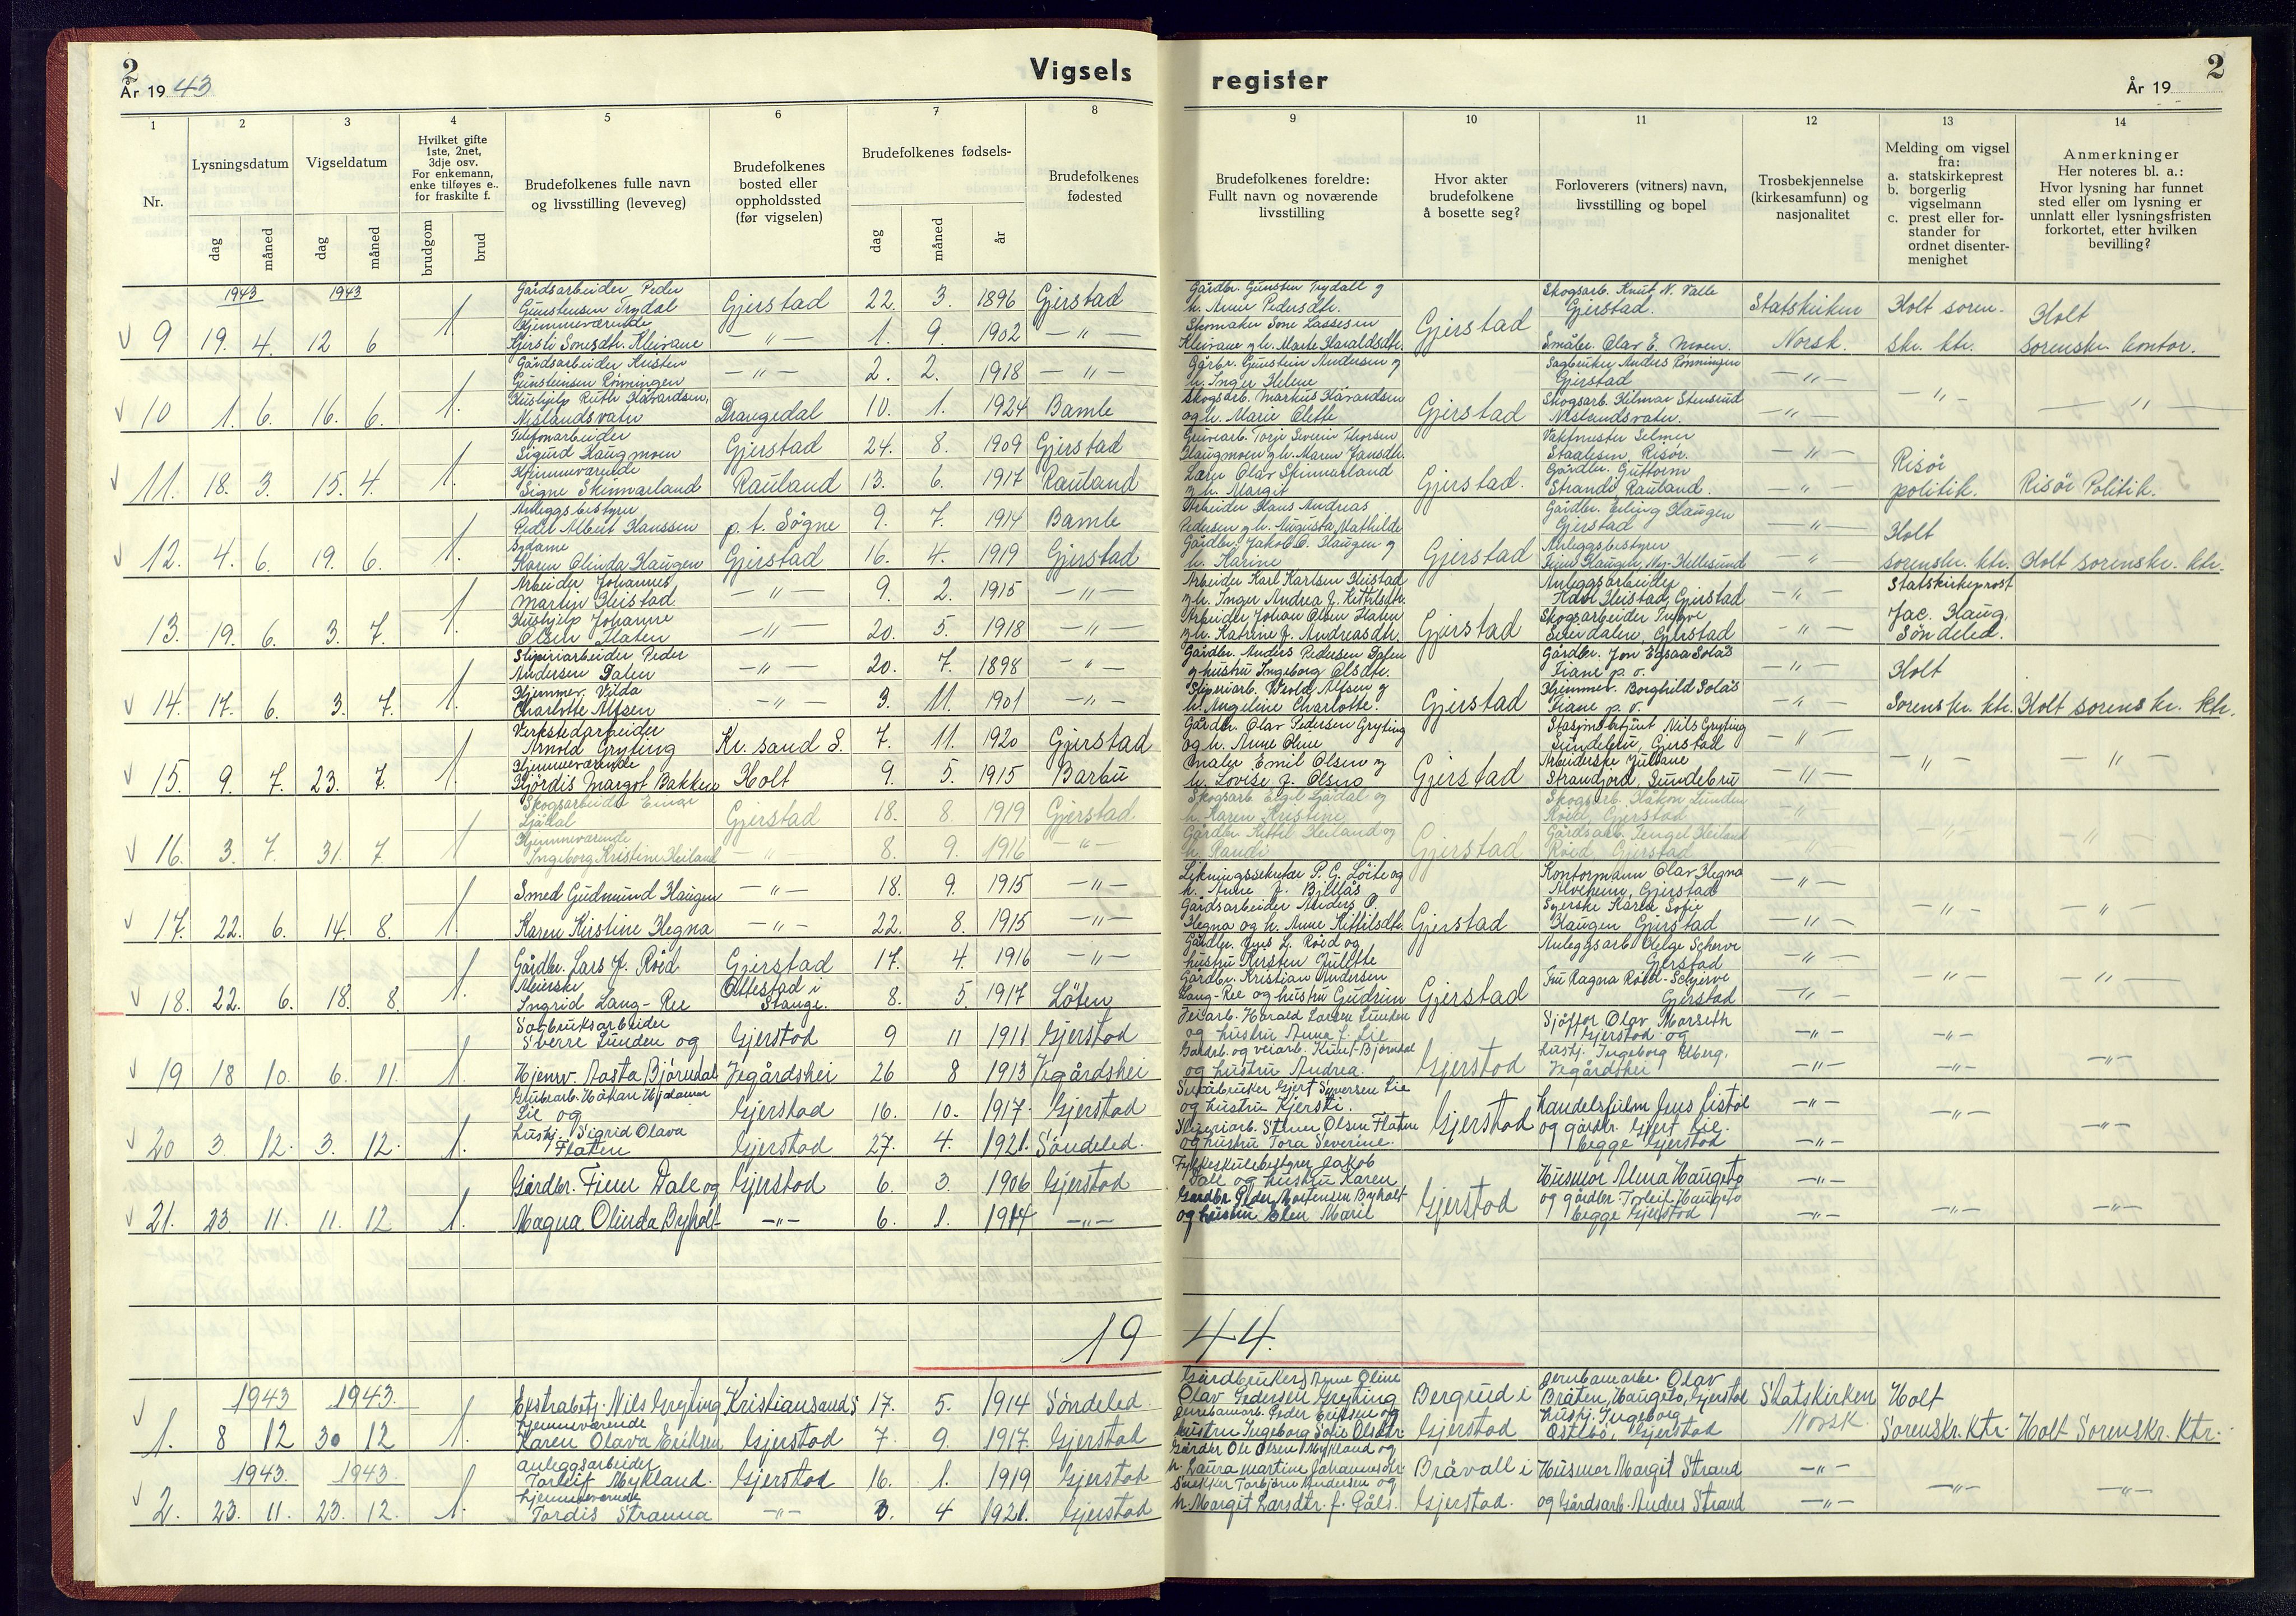 2
År 1943
Vigsels
register
År 19
2
1
2
3
4
5
6
7
8
9
10
11
12
13
14
Nr.
Lysningsdatum
Vigseldatum
Hvilket gifte
1ste, 2net,
3dje osv.
For enkemann,
enke tilføyes e..
for fraskilte f.
Brudefolkenes fulle navn
og livsstilling (leveveg)
Brudefolkenes
bosted eller
oppholdssted
(før vigselen)
Brudefolkenes fødsels-
Brudefolkenes
fødested
Brudefolkenes foreldre:
Fullt navn og noværende
livsstilling
Hvor akter
brudefolkene
å bosette seg?
Forloverers (vitners) navn,
livsstilling og bopel
Trosbekjennelse
(kirkesamfunn) og
nasjonalitet
Melding om vigsel
fra:
a. statskirkeprest
b. borgerlig
vigselmann
c. prest eller for-
stander for
ordnet disenter-
menighet
Anmerkninger
Her noteres bl. a.:
Hvor lysning har funnet
sted eller om lysning er
unnlatt eller lysningsfristen
forkortet, etter hvilken
bevilling?
dag
måned
dag
måned
brudgom
brud
dag
måned
år
1943 1943
Gårdsarbeider Peder
Gunstensen Trydal Gjerstad 22. 3. 1896 Gjerstad
Hjemmeværende
9 19. 4. 12 6 1. Kjersti Sonesdtr. Kleivane — " — 1. 9. 1902 — " —
Gårdbr. Gunsten Trydall g
h. Anne Pedersdtr.
Skomaker Sone Lassesen
Kleivane g h. Marte Haraldsdtr.
Gjerstad
Skogsarb. Knut N. Valle
Gjerstad.
Småbr. Olav E. Moen.
Statskirken
Norsk.
Holt soren.
skr. ktr.
Holt
Sorenskr. kontor.
Gårdsarbeider Kristen
Gunsteinsen Rønningen — " — 2. 2. 1918 — " —
Hushjelp Ruth Håvardsen,
10 1. 6. 16. 6. 1. Neslandsvatn Drangedal 10. 1. 1924 Bamle
Gårbr. Gunstein Andersen g
h. Inger Helene
Skogsarb. Markus Håvardsen
og h. Marie Olette
Gjerstad
Sagbruker Anders Rønningen
Gjerstad
Skogsarb. Hilmar Stensrud
Neslandsvatn.
— " —
— " —
— " —
— " —
Telefonarbeider
Sigurd Haugmoen Gjerstad 24. 8. 1909 Gjerstad
Hjemmeværende
11. 18. 3. 15. 4. 1. Signe Skinnarland Rauland 13. 6. 1917 Rauland
Gruvearb. Torje Severin Thorsen
Haugmoen g h. Maren Jansdtr.
Lærer Olav Skinnarland
g h. Margit
Gjerstad.
Vaktmester Selmer
Staalesen, Risør.
Gårdbr. Guttorm
Strand, Rauland.
— " —
— " —
Risør
politik.
Risør Politik.
Anleggsbestyrer
Peder Albert Hanssen p. t. Søgne 9. 7. 1914 Bamle
Sydame
12. 4. 6. 19. 6. 1. Karen Olinda Haugen Gjerstad 16. 4. 1919 Gjerstad
Arbeider Hans Andreas
Pedersen g h. Augusta Mathilde
Gårdbr. Jakob O. Haugen g
h. Karine
Gjerstad
Gårdbr. Erling Haugen
Gjerstad
Anleggsbestyrer
Finn Haugen, Ny-Hellesund
— " —
— " —
Holt
sorenskr. ktr.
Holt sorenskr. ktr.
Arbeider Johannes
Martin Heistad — " — 9. 2. 1915 — " —
Hushjelp Johanne
13. 19. 6. 3. 7. 1. Olsen Flaten — " — 20. 5. 1918 — " —
Arbeider Karl Karlsen Heistad
g h. Inger Andrea f. Kittilsdtr.
Arbeider Johan Olsen Flaten
g h. Katrine f. Andreasdtr.
Gjerstad
Anleggsarbeider
Karl Heistad, Gjerstad
Skogsarbeider Trygve
Sven dalen, Gjerstad
— " —
— " —
Statskirkeprost
Jac. Haug,
Søndeled.
Sliperiarbeider Peder
Andersen Dalen — " — 20. 7. 1898 — " —
Hjemmev. Vilda
14. 17. 6. 3. 7. 1. Charlotte Alfsen — " — 3. 11. 1901 — " —
Gårdbr. Anders Pedersen Dalen
g hustru Ingeborg Olsdtr.
Sliperiarb. Alfsen g
h. Angeline Charlotte.
Gjerstad
Gårdbr. Jon Egsaa Solås
Fiane p. o.
Hjemmev. Borghild Solås
Fiane p. o.
— " —
— " —
Holt
Sorenskr. ktr.
Holt sorenskr. ktr.
Verkstedarbeider
Arnold Gryting Kr. sand S. 7. 11. 1920 Gjerstad
Hjemmeværende
15. 9. 7. 23. 7. 1. Hjørdis Margot Bakken Holt 9. 5. 1915 Barbu
Gårdbr. Olav Pedersen Gryting
og h. Anne Oline
Maler Emil Olsen g
h. Lovise f. Olsen
Gjerstad
Stasjonsbetjent Nils Gryting
Sundebru, Gjerstad
Arbeiderske Juliane
Strandjord, Sundebru
— " —
— " —
— " —
— " —
Skogsarbeider Einar
Ljådal Gjerstad 18. 8 1919 Gjerstad
Hjemmeværende
16. 3. 7. 31. 7. 1 Ingeborg Kristine Heiland — " — 8. 9. 1916 — " —
Skogsarb. Ljådal og
h. Karen Kristine
Gårdbr. Kittil Heiland og
h. Randi
Gjerstad
Skogsarb. Håkon Lunden
Røed, Gjerstad
Gårdsarb. Tengel Heiland
Røed Gjerstad
— " —
— " —
— " —
— " —
Smed Gudmund Haugen — " — 18. 9. 1915 — " —
17. 22. 6. 14. 8. 1. Karen Kirstine Hegna — " — 22. 8. 1915 — " —
Likningssekretær P. G. Løite og
h. Anne f. Billås
Gårdsarbeider Anders O.
Hegna og h. Anne Kittilsdtr.
Gjerstad
Kontormann Olav Hegna
Alvheim, Gjerstad
Syerske Karla Sofie
Haugen Gjerstad
— " —
— " —
— " —
— " —
Gårdbr. Lars J. Røed Gjerstad 17. 4. 1916 — " —
Meierske
18. 22. 6. 18. 8. 1. Ingrid Lang-Ree Ottestad i Stange. 8. 5. 1917 Løten
Gårdbr. Jens L. Røed og
hustru Kirsten Julette
Gårdbr. Kristian Andersen
Lang-Ree og hustru Gudrun
Gjerstad
Anleggsarb. Helge Scherve
Gjerstad
Fru Ragna Røed-Schjerve
Gjerstad
— " —
— " —
— " —
— " —
Sagbruksarbeider
Sverre Lunden og Gjerstad 9 11 1911 Gjerstad
19 18 10. 6. 11. 1. Hjemv. Aasta Bjørndal Vegårdshei 26 8 1913 Vegårdshei
Veiarb. Harald Larsen Lunden
og hustru Anna f. Lie
Gårdbr. og veiarb. Knut Bjørndal
og hustru Andrea.
Gjerstad
Sjåffør Olav Marseth
Gjerstad og
hushj. Ingeborg Ulberg,
Vegårdshei
— " —
— " —
— " —
— " —
— " —
Grubearb. Håkan Hjalmar
Lie og Gjerstad 16. 10. 1917. Gjerstad
hushj. Sigrid Olava
20 3. 12. 3. 12. 1. Flaten Gjerstad 27. 4. 1921. Søndeled.
Småbruker Gjert Syversen Lie
og hustru Kjersti.
Sliperiarb. Olsen Flaten
og hustru Tora Severine.
Gjerstad
Handelsfullm. Jens Fistøl
og gårdbr. Gjert Lie.
begge Gjerstad
— " —
— " —
— " —
— " —
Gårdbr. Finn Dale og Gjerstad 6. 3. 1906 Gjerstad
21. 23 11. 11. 12 1. Magna Olinda Byholt — " — 6. 1. 1914 — " —
Fylkesskulebestyrer Jakob
Dale og hustru Karen
Gårdbr. Peder Mortensen Byholt
og hustru Elen Marie
Gjerstad
Husmor Alma Haugeto
og gårdbr. Torleif Haugeto
begge Gjerstad
— " —
— " —
— " —
— " —
19 44.
1943 1943.
Ekstrabetj. Nils Gryting Kristiansand S 17. 5. 1914 Søndeled
hjemmeværende
1. 8 12 30 12 1. Karen Olava Eriksen Gjerstad 7. 9. 1917. Gjerstad
Gårdbrukers Anne Oline
Olav Pedersen Gryting
Jernbanearb. Peder Eriksen og
hustru Ingeborg Sofie Olsdtr.
Bergrud i
Gjerstad
Jernbanearbe. Olav
Bråten, Haugeto, Gjerstad
hushj. Ingeborg
Østebø, Gjerstad
Statskirken
Norsk
Holt
Sorenskr. Ktr.
Holt Sorenskr. Ktr.
1943. 1943.
anleggsarbeider
Torleif Mykland. Gjerstad 16. 1. 1919 Gjerstad
hjemmeværende
2. 23. 11. 23. 12. 1. Tordis Stranna — " — 3. 4 1921. Gjerstad
Gårdbr Ole Olsen Mykland og
h. Laura Martine Johannesdtr.
Snekker Torbjørn Andersen og
h. Margit Larsdtr. f.
Bråvall i
Gjerstad.
Husmor Margit Strand
og Gårdsarb. Anders Strand
— " —
— " —
— " —
— " —